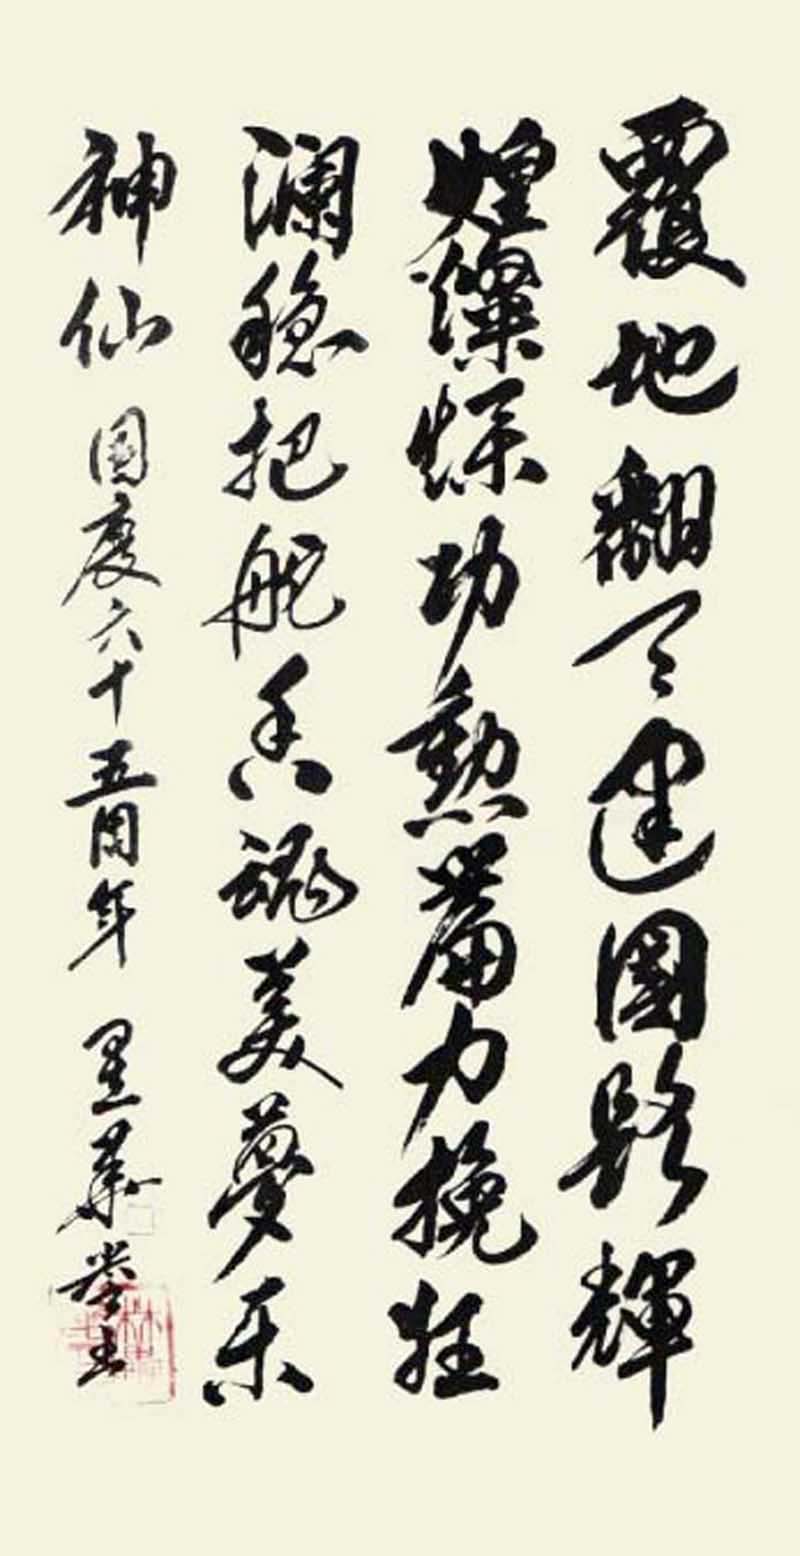 覆地翻天建國路輝
煌燦爍功勳篇力挽狂
瀾穩把舵美夢乐
神仙 國慶六十五周年 華書